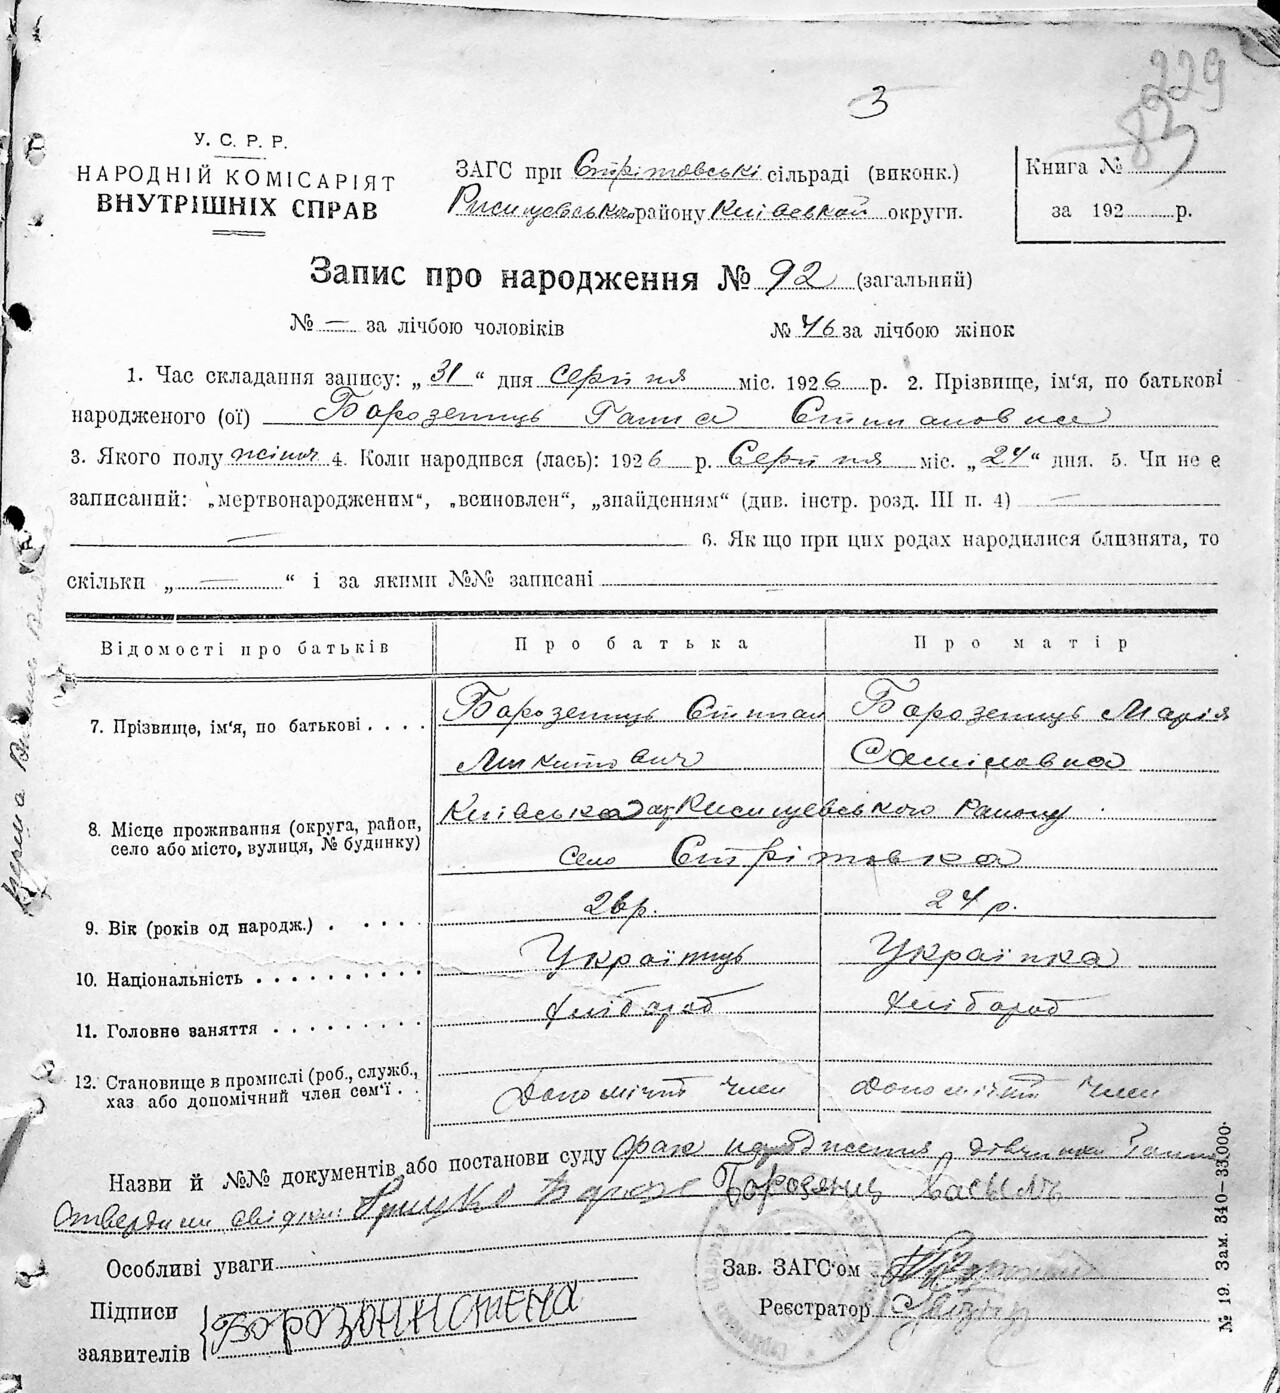 229
83
3
У. С. Р. Р.
НАРОДНІЙ КОМІСАРІЯТ
ВНУТРІШНІХ СПРАВ
ЗАГС при Стрітовські сільраді (виконк.)
району Київської округи.
Книга №
за 192 р.
Запис про народження № 92 (загальний)
№ — за лічбою чоловіків
№ 46 за лічбою жінок
1. Час складання запису: „31“ дня серпня міс. 1926 р. 2. Прізвище, ім‘я, по батькові
народженого (ої) Борозенець Ганна Степановна
3. Якого полу жіноч 4. Коли народився (лась): 1926 р. Серпня міс. „24“ дня. 5. Чи не є
записаний: „мертвонародженим“, „всиновлен“, „знайденням“ (див. інстр. розд. III п. 4) —
— 6. Якщо при цих родах народилися близнята, то
скільки „ — “ і за якими №№ записані
Відомості про батьків
Про батька
Про матір
7. Прізвище, ім‘я, по батькові . . . .
Борозенець Степан
Микитович
Борозенець Марія
8. Місце проживання (округа, район,
село або місто, вулиця, № будинку)
Київська району
село Стрітовка
9. Вік (років од народж.) . . . . .
26 р.
24 р.
10. Національність . . . . . . . . . .
Українець
Українка
11. Головне заняття . . . . . . . . .
Хлібороб
Хлібороб
12. Становище в промислі (роб., служб.,
хаз або допомічний член сем‘ї . .
Допомічній член
Допомічній член
Назви й №№ документів або постанови суду факт народження дівчинки Ганни
ствердили свідки: Грицко Борозянец Василь
Особливі уваги
Зав. ЗАГС‘ом
Підписи
заявителів
Реєстратор
№ 19. Зам. 340—33.000.